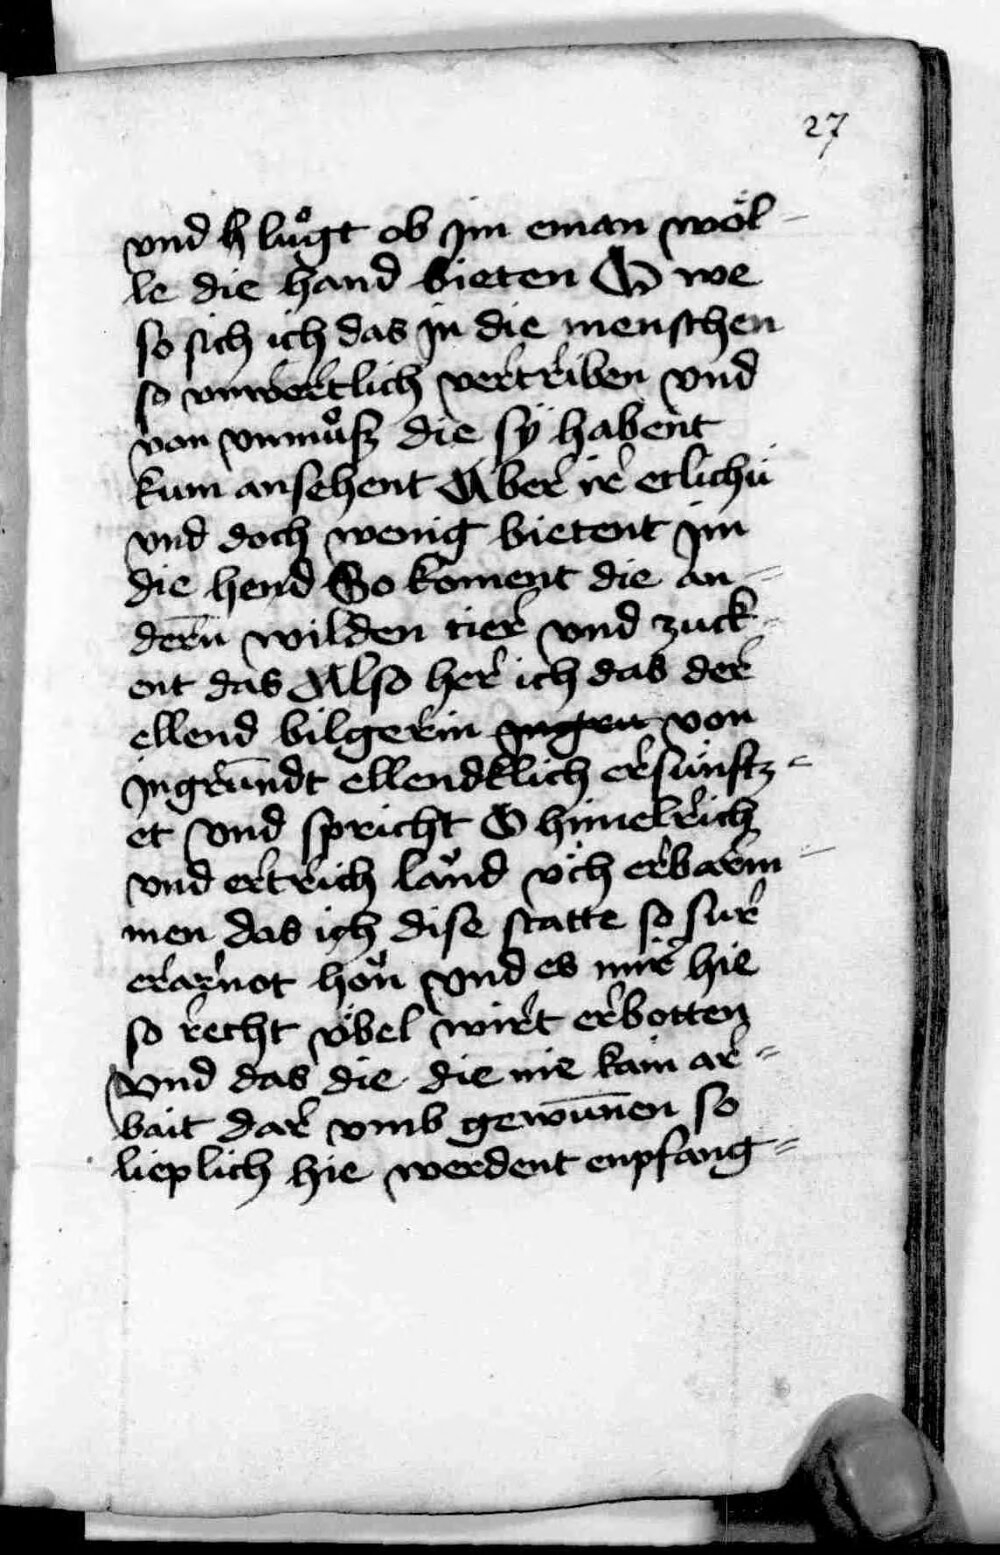 27
vnd h luͦgt ob im eman wöl-
le die hand bieten O we
so sich ich das jn die menschen
so vnwertlich vertriben vnd
von vnmuͦsz die sÿ habent
kum ansehent Aber ir etlichü
vnd doch wenig bietent jm
die hend So koment die an=
dern̄ wilden tier vnd zuck=
ent das Also her ich das der
ellend bilgerin von
jngrūndt ellendklich ersünftz=
et vnd spricht O himelrich
vnd ertrich länd üch erbarm-
men das ich dise statte so sur
erarnot hön vnd es mir hie
so recht übel wirt erbotten
Vnd das die die nie kain ar=
bait dar vmb gewūnen so
lieplich hie werdent enpfang=